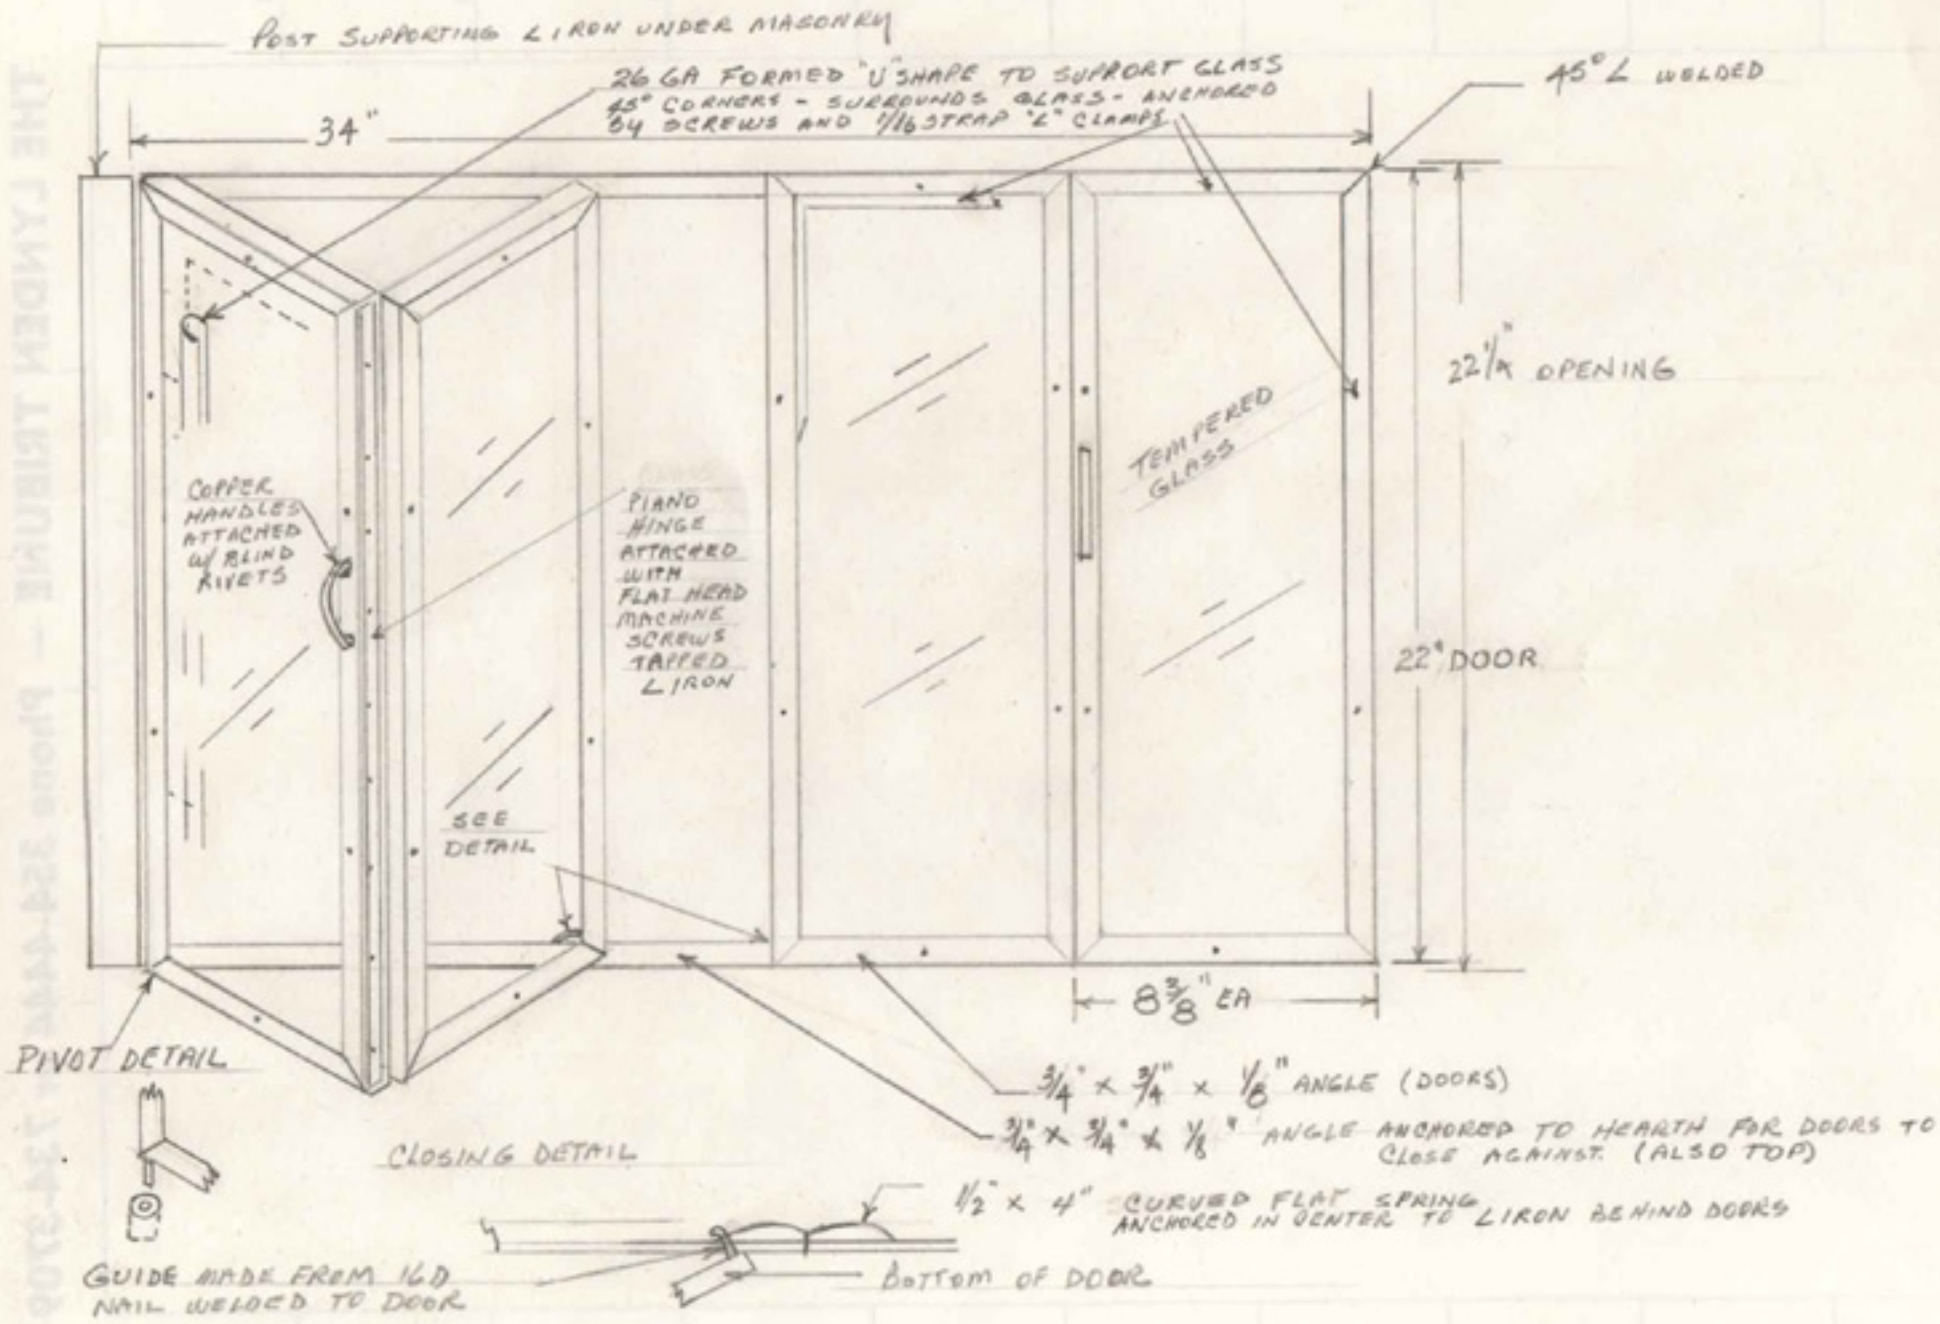 POST SUPPORTING L IRON UNDER MASONRY
26 GA FORMED "U" SHAPE TO SUPPORT GLASS
45° CORNERS - SURROUNDS GLASS - ANCHORED
SCREWS AND 1/16 STRAP "L" CLAMPS
45° L WELDED
34"
22 1/4" OPENING
TEMPERED
GLASS
COPPER
HANDLES
ATTACHED
W/ BLIND
RIVETS
PIANO
HINGE
ATTACHED
WITH
FLAT HEAD
MACHINE
SCREWS
TAPPED
L IRON
22" DOOR
SEE
DETAIL
8 3/8" EA
PIVOT DETAIL
3/4" x 3/4" x 1/8" ANGLE (DOORS)
3/4" x 3/4" x 1/8" ANGLE ANCHORED TO HEARTH FOR DOORS TO
CLOSE AGAINST. (ALSO TOP)
CLOSING DETAIL
1/2" x 4" CURVED FLAT SPRING
ANCHORED IN CENTER TO L IRON BEHIND DOORS
GUIDE MADE FROM 16D
NAIL WELDED TO DOOR
BOTTOM OF DOOR
THE LYNDEN TRIBUNE — Phone 354-444
734-3709